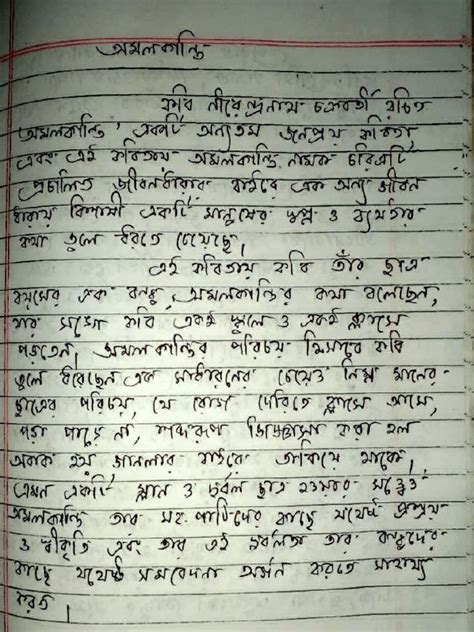 অমলকান্তি
কবি নীরেন্দ্রনাথ চক্রবর্তী রচিত
'অমলকান্তি' একটি অন্যতম জনপ্রিয় কবিতা
এবং এই কবিতায় অমলকান্তি নামক চরিত্রটি
প্রচলিত জীবনধারার বাইরে এক অন্য জীবন
ধারায় বিশ্বাসী একটি মানুষের স্বপ্ন ও ব্যর্থতার
কথা তুলে ধরতে চেয়েছে।
এই কবিতায় কবি তাঁর ছাত্র
বয়সের এক বন্ধু, অমলকান্তির কথা বলেছেন,
যার সঙ্গে কবি একই স্কুলে ও একই ক্লাসে
পড়তেন। অমলকান্তির পরিচয় হিসাবে কবি
তুলে ধরেছেন এক সাধারনের চেয়েও নিম্ন মানের
ছাত্রের পরিচয়, যে রোজ দেরিতে ক্লাসে আসে,
পড়া পারে না, শব্দরূপ জিজ্ঞাসা করা হলে
অবাক হয়ে জানলার বাইরে তাকিয়ে থাকে।
এমন একটি ম্লান ও দুর্বল ছাত্র হওয়ার সত্ত্বেও
অমলকান্তি তার সহপাঠিদের কাছে যথেষ্ট প্রশ্রয়
ও স্বীকৃতি এবং তার এই দুর্বলতা তার বন্ধুদের
কাছে যথেষ্ট সমবেদনা অর্জন করতে সাহায্য
করত।